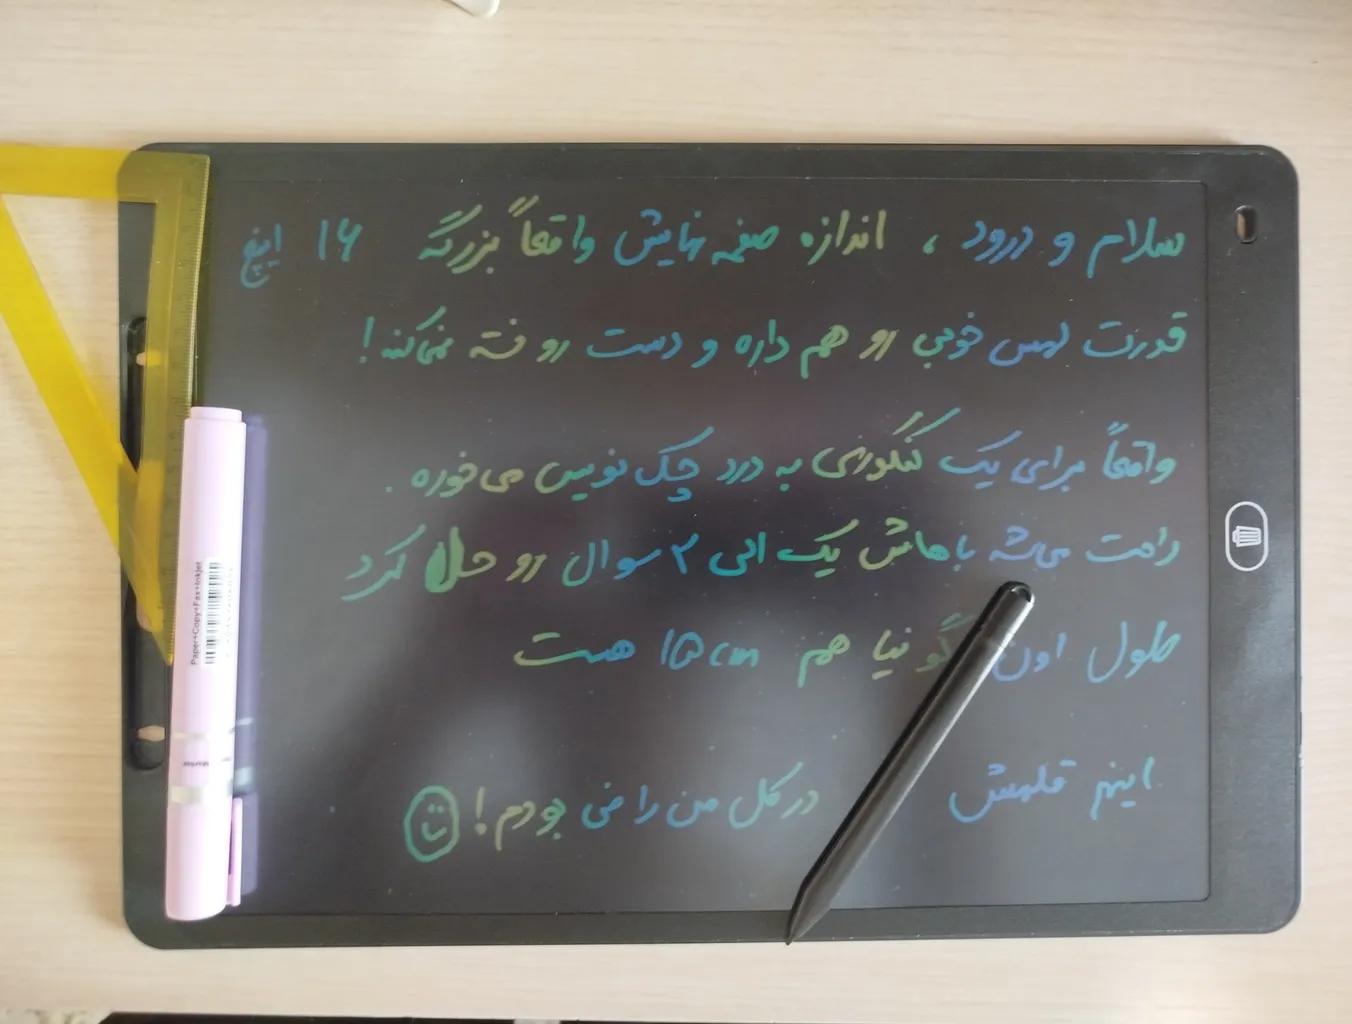 سلام و درود ، اندازه صفحه نمایش واقعاً بزرگه ۱۶ اینچ
قدرت لمس خوبی رو هم داره و دست رو خسته نمی‌کنه!
واقعاً برای یک کنکوری به درد چک نویس می‌خوره.
راحت می‌شه باهاش یک الی ۲ سوال رو حل کرد
طول اون گونیا هم ۱۵cm هست
اینم قلمش
در کل من راضی بودم!
Paper+Copy+Fax+Inkjet
Marker